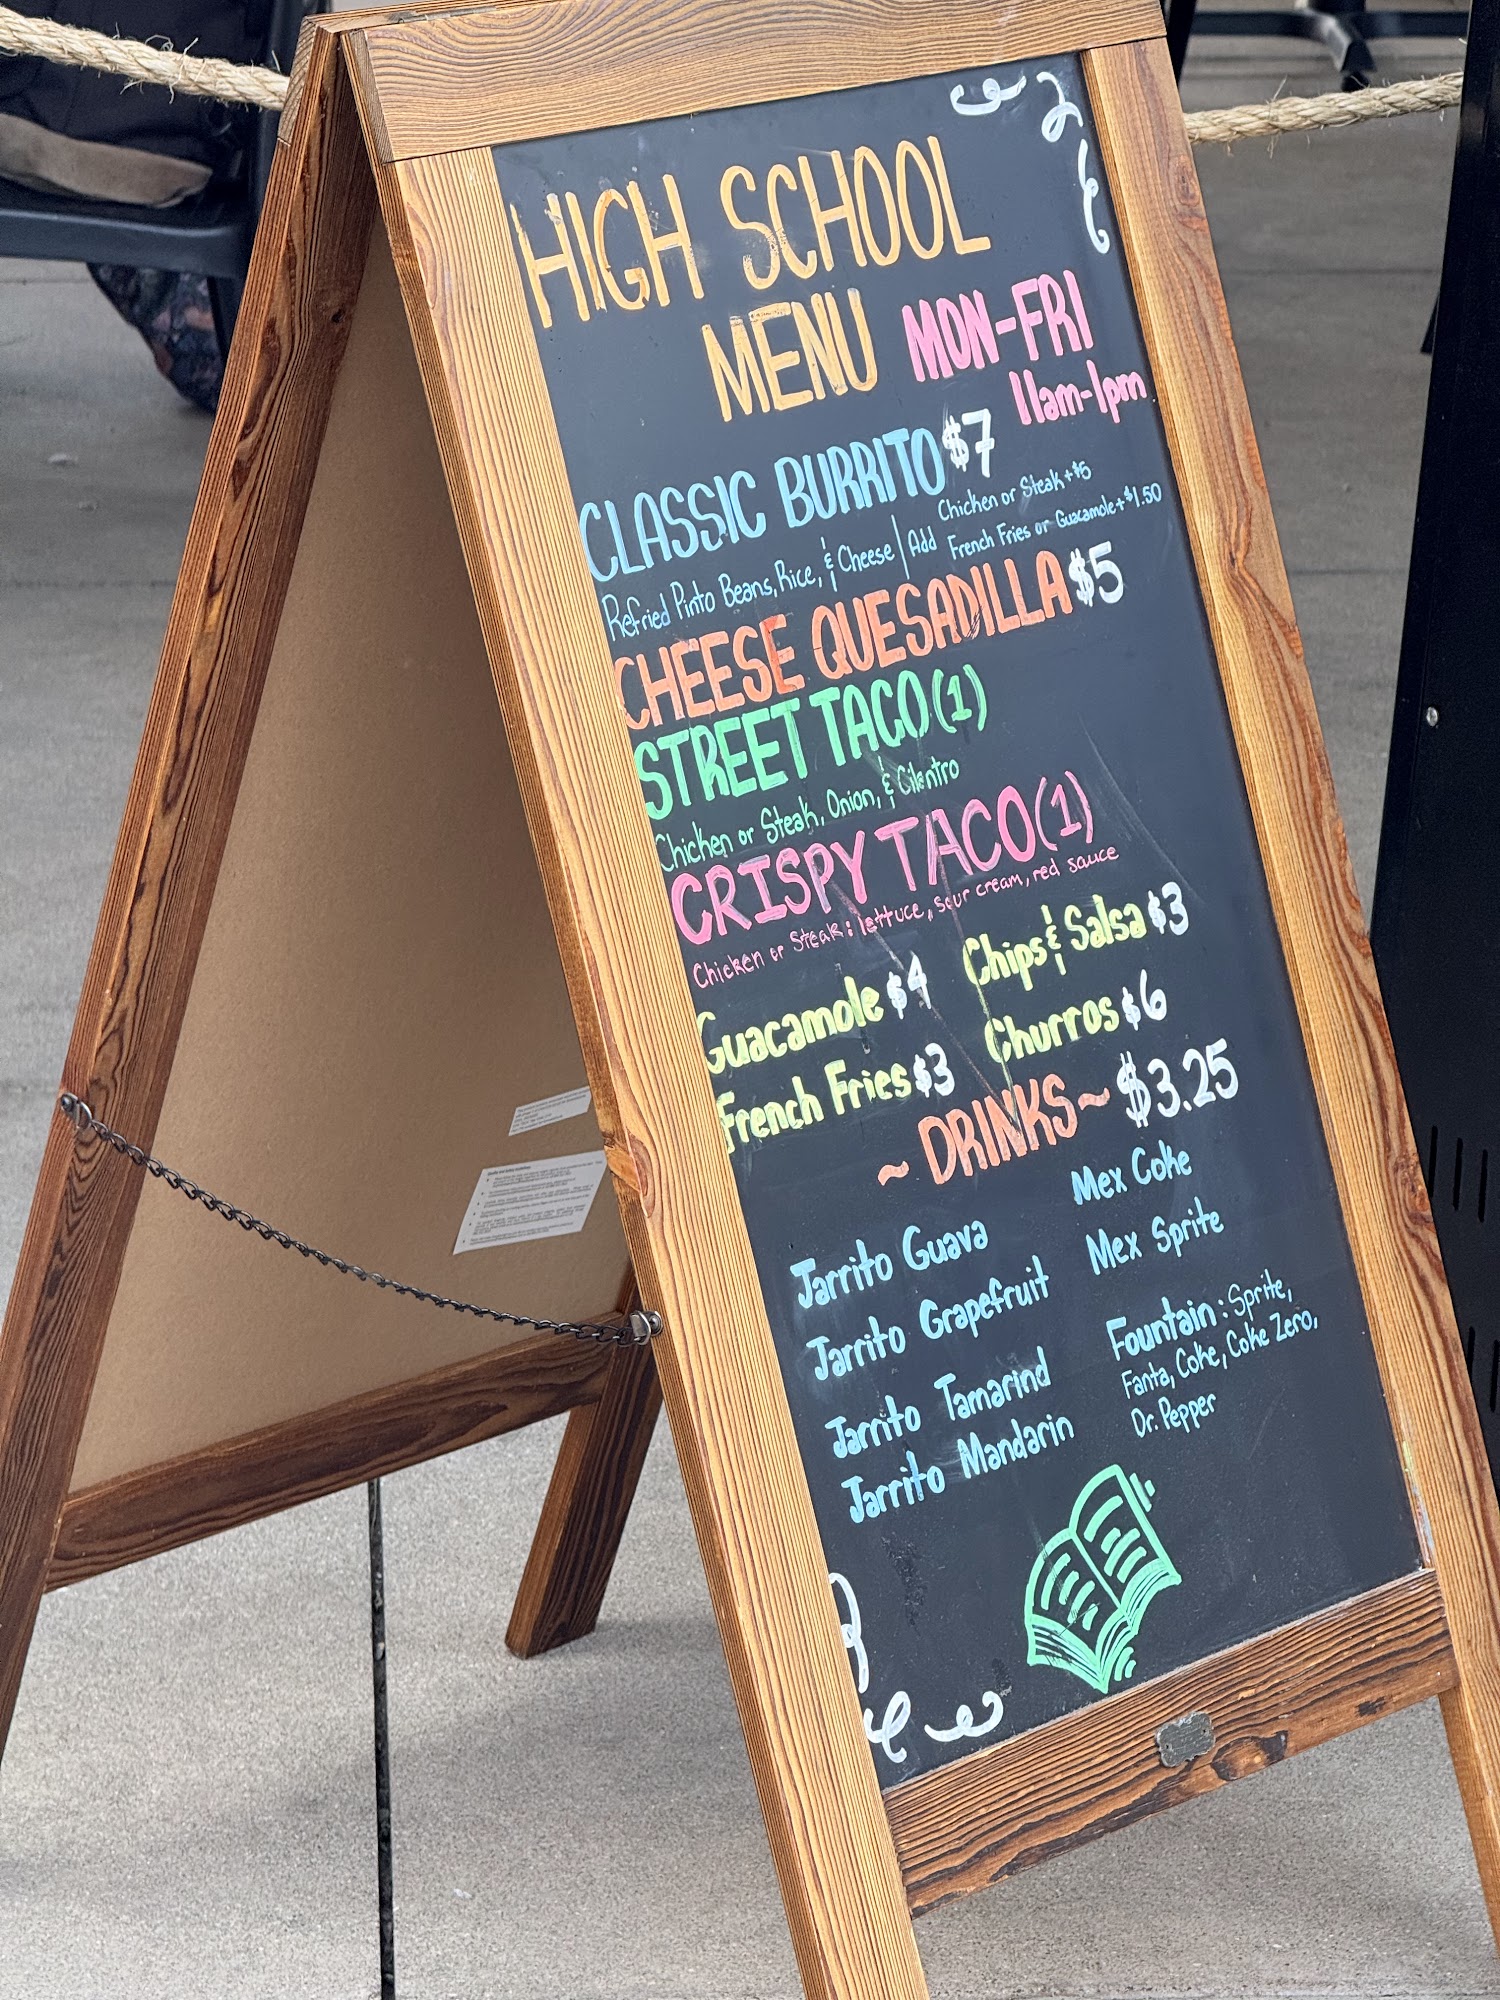 HIGH SCHOOL
MENU
MON-FRI
11am-1pm
CLASSIC BURRITO $7
Refried Pinto Beans, Rice, & Cheese | Add
Chicken or Steak + $5
French Fries or Guacamole + $1.50
CHEESE QUESADILLA $5
STREET TACO (1)
Chicken or Steak, Onion, & Cilantro
CRISPY TACO (1)
Chicken or Steak: lettuce, sour cream, red sauce
Guacamole $4
Chips & Salsa $3
French Fries $3
Churros $6
~ DRINKS ~ $3.25
Jarrito Guava
Jarrito Grapefruit
Jarrito Tamarind
Jarrito Mandarin
Mex Coke
Mex Sprite
Fountain: Sprite,
Fanta, Coke, Coke Zero,
Dr. Pepper